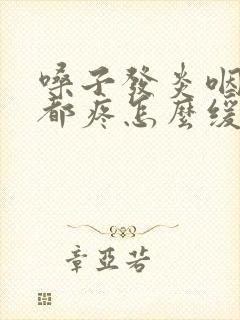 嗓子發炎咽
都疼怎麼緩
章亞若